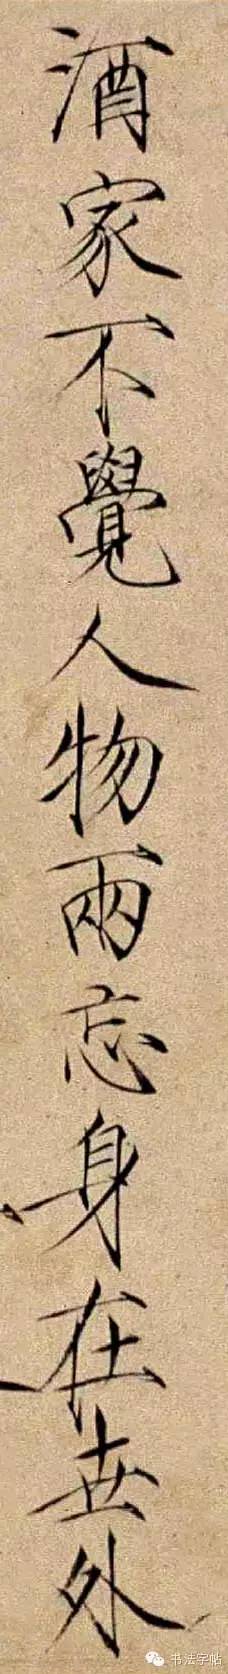 酒家不覺人物兩忘身在世外
书法字帖